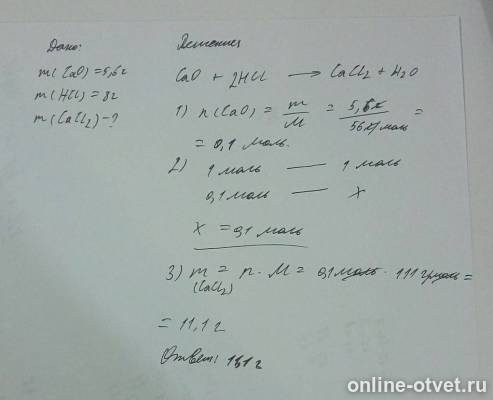 Дано:
m(CaO)=5,6г
m(HCl)=8г
m(CaCl2)-?
Решение
CaO + 2HCl → CaCl2 + H2O
1) n(CaO) = m/M = 5,6г/56г/моль =
= 0,1 моль.
2) 1 моль — 1 моль
0,1 моль — x
x = 0,1 моль
3) m(CaCl2) = n · M = 0,1 моль · 111 г/моль =
= 11,1 г
Ответ: 11,1 г
online-otvet.ru